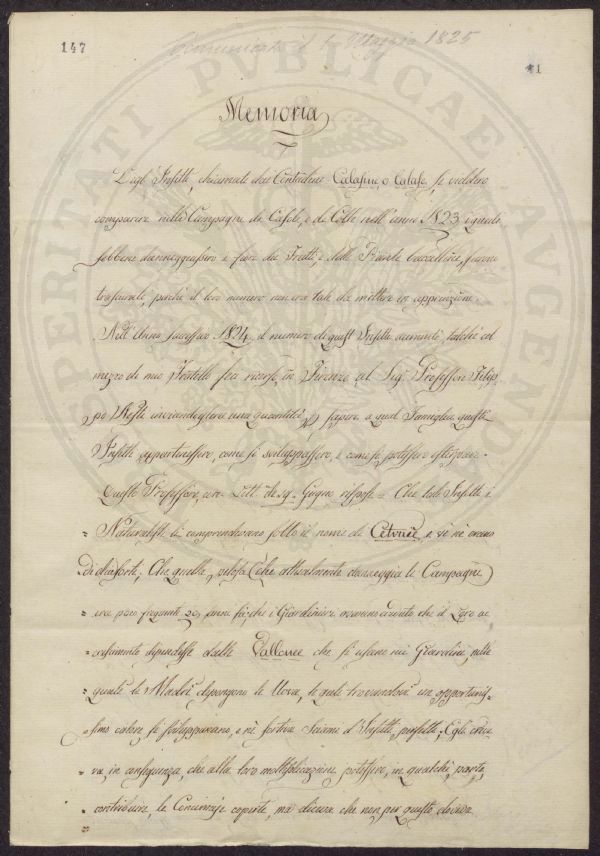 147
Comunicata il 1 Maggio 1825
41
PROSPERITATI PUBLICAE AUGENDAE
Memoria
Degl' Insetti, chiamati dai Contadini Calafini o Calafe, si viddero
comparire nelle Campagne di Casole, e di Colle nell' anno 1823 i quali
sebbene danneggiassero i fiori dei Frutti, e delle Piante baccelline, furono
trascurati, perchè il loro numero non era tale da mettere in apprensione.
Nell' Anno successivo 1824 il numero di questi Insetti aumentò, talchè col
mezzo di mio Fratello feci ricorso, in Firenze al Sig. Professore Filip-
po Nesti inviandogliene una quantità p. sapere a qual Famiglia questi
Insetti appartenessero, come si sviluppassero, e come si potessero
Questo Professore, con Lett. de 19. Giugno rispose = Che tali Insetti i
= Naturalisti li comprendevano sotto il nome di Cetonie, e vi ne erano
Di diverse sorti; Che quella pelosa (che attualmente danneggia le Campagne)
= era poco frequente 20 anni fà, che i Giardinieri avevano creduto che il loro ac=
= crescimento dipendesse dalla Vallonea che si usano nei Giardini, nelle
= quali le Madri depongono le Uova, le quali trovandovi un opportunis-
= simo calore si sviluppavano, e ne sortiva Sciami d' Insetti perfetti; Egli crede
= va, in conseguenza, che alla loro moltiplicazione potessero, in qualche parte,
= contribuire, le Concimaje coperte, ma diceva che non per questo